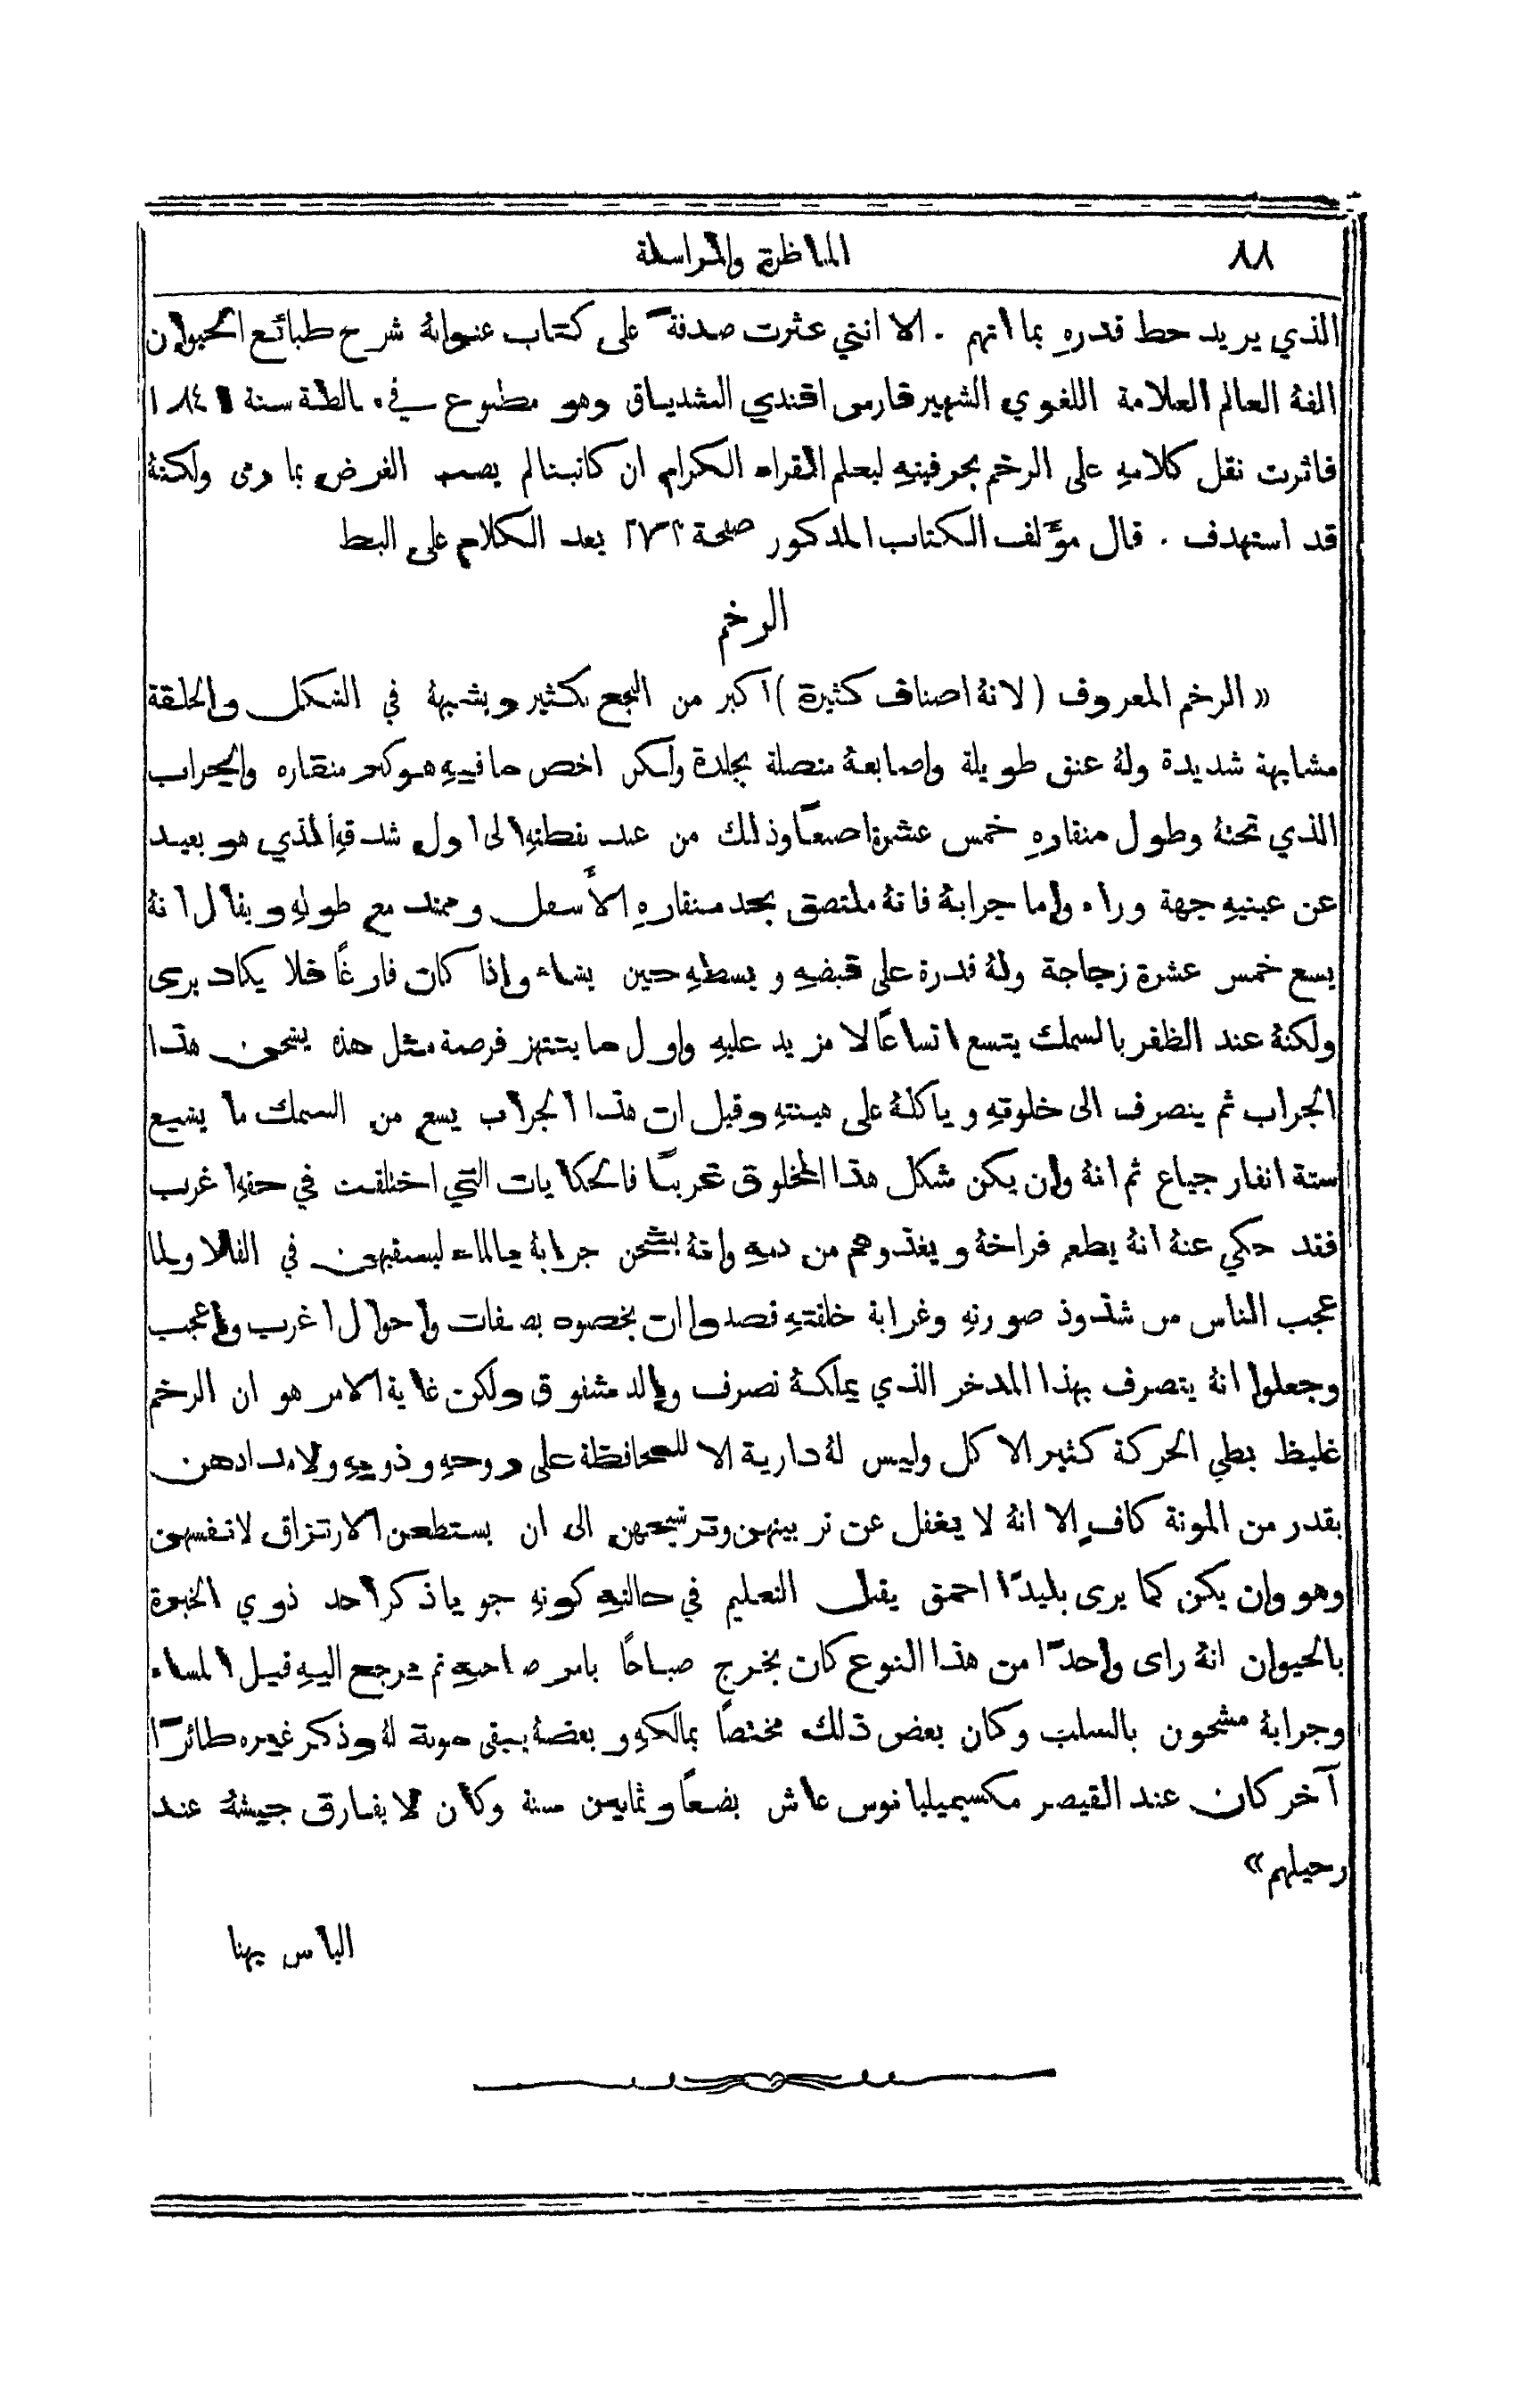 ٨٨
المناظرة والمراسلة
الذي يريد حط قدرهِ بما اتهم . الا انني عثرت صدفةً على كتاب عنوانهُ شرح طبائع الحيوان
الفهُ العالم العلامة اللغوي الشهير فارس افندي الشدياق وهو مطبوع في مالطة سنة ١٨٤١
فاثرت نقل كلامهِ على الرخم بحرفيتهِ ليعلم القراء الكرام ان كاتبنا لم يصب الغرض بما رمى ولكنهُ
قد استهدف . قال مؤَلف الكتاب المذكور صفحة ٢٧٢ بعد الكلام على البط
الرخم
« الرخم المعروف ( لانهُ اصناف كثيرة ) اكبر من البجع بكثير ويشبههُ في الشكل والخلقة
مشابهة شديدة ولهُ عنق طويلة واصابعهُ متصلة بجلدة ولكن اخص ما فيهِ هو كبر منقاره والجراب
الذي تحتهُ وطول منقارهِ خمس عشرة اصبعًا وذلك من عند نقطتهِ الى اول شدقهِ الذي هو بعيد
عن عينيهِ جهة وراء واما جرابهُ فانهُ ملتصق بحد منقارهِ الأسفل وممتد مع طولهِ ويقال انهُ
يسع خمس عشرة زجاجة ولهُ قدرة على قبضهِ وبسطهِ حين يشاء واذا كان فارغًا فلا يكاد يرى
ولكنهُ عند الظفر بالسمك يتسع اتساعًا لا مزيد عليهِ واول ما ينتهز فرصة مثل هذه يشحن هذا
الجراب ثم ينصرف الى خلوتهِ وياكلهُ على هينتهِ وقيل ان هذا الجراب يسع من السمك ما يشبع
ستة انفار جياع ثم انهُ وان يكن شكل هذا المخلوق غريبًا فالحكايات التي اختلقت في حقهِ اغرب
فقد حكي عنهُ انهُ يطعم فراخهُ ويغذوهم من دمهِ وانهُ يشحن جرابهُ بالماء ليسقيهن في الفلا ولما
عجب الناس من شذوذ صورتهِ وغرابة خلقتهِ قصدوا ان يخصوه بصفات واحوال اغرب واعجب
وجعلوا انهُ يتصرف بهذا المدخر الذي يملكهُ تصرف والد مشفوق ولكن غاية الامر هو ان الرخم
غليظ بطي الحركة كثير الاكل وليس لهُ دارية الا للمحافظة على روحهِ وذويهِ ولامدادهن
بقدر من المونة كافٍ الا انهُ لا يغفل عن تربيتهن وترشيحهن الى ان يستطعن الارتزاق لانفسهن
وهو وان يكن كما يرى بليدًا احمق يقبل التعليم في حالتهِ كونهِ جويا ذكر احد ذوي الخبرة
بالحيوان انهُ راى واحدًا من هذا النوع كان يخرج صباحًا بامر صاحبهِ ثم يرجع اليهِ قبل المساء
وجرابهُ مشحون بالسلب وكان بعض ذلك مختصًا بمالكهِ وبعضهُ يبقى مونة لهُ وذكر غيره طائرًا
آخر كان عند القيصر مكسيميليانوس عاش بضعًا وثمانين سنة وكان لا يفارق جيشهُ عند
رحيلهم »
الياس بهنا